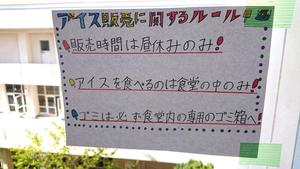 アイス販売に関するルール!
販売時間は昼休みのみ!
アイスを食べるのは食堂の中のみ!
ゴミは必ず食堂内の専用のゴミ箱へ!